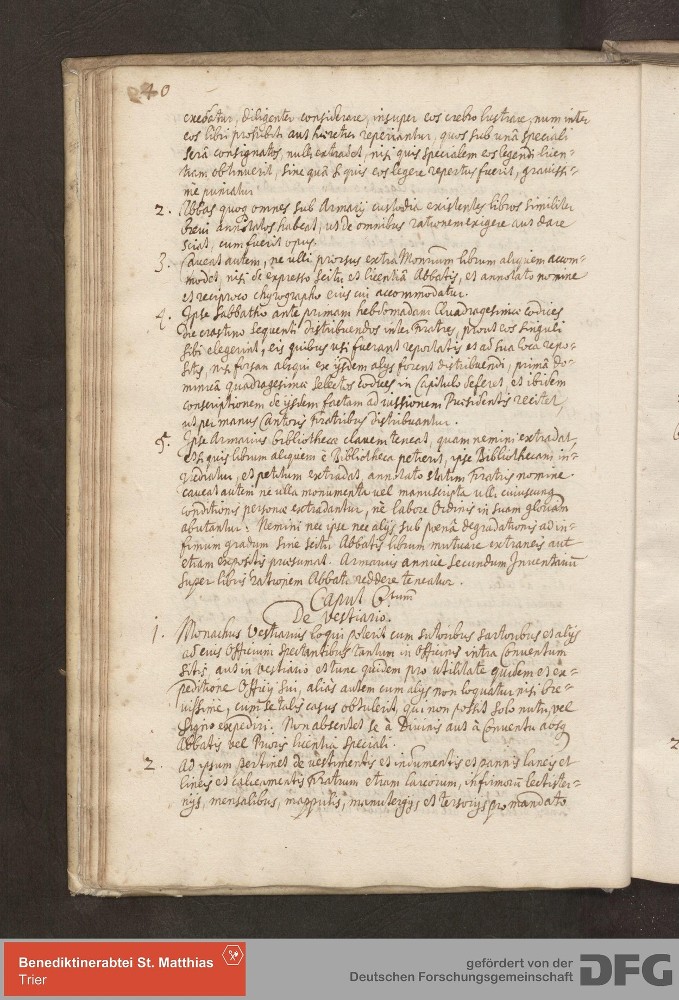 240
credatur, diligenter considerare, insuper eos crebro lustrare, num inter
eos libri prohibiti aut hæretici reperiantur, quos sub unâ speciali
serâ consignatos, nulli extradet, nisi quis specialem eos legendi licen=
tiam obtinuerit, sine quâ si quis eos legere repertus fuerit, gravissi=
mè puniatur
2. Abbas quoq omnes sub Armarij custodia existentes libros similiter
brevi annotatos habeat, ut de omnibus rationem exigere aut dare
sciat, cum fuerit opus.
3. Caveat autem, ne ulli prorsus extra Monrium librum aliquem accom=
modet, nisi de expresso scitu et licentiâ Abbatis, et annotato nomine
et reciproco chyrographo eius cui accommodatur.
4. Ipse Sabbatho ante primam hebdomadam Quadragesimæ codices
die crastino sequenti distribuendos inter Fratres, prout eos singuli
sibi elegerint, eis quibus usi fuerant reportatis et ad sua loca repo=
sitis, nisi forsan aliqui ex ijsdem alijs forent distribuendi, primâ do=
minicâ quadragesimæ selectos codices in Capitulo deferet, et ibidem
conscriptionem de ijsdem factam ad iussionem Præsidentis recitet,
ut per manus Cantoris Fratribus distribuantur.
5. Ipse Armarius bibliothecæ clavem teneat, quam nemini extradat,
et si quis librum aliquem è Bibliotheca petierit, ipse Bibliothecam in=
grediatur, et petitum extradat, annotato statim Fratris nomine.
caveat autem ne ulla monumenta vel manuscripta ulli cuiuscunq
conditionis personæ extradantur, ne labore Ordinis in suam gloriam
abutantur: Nemini nec ipse nec alijs sub pœnâ degradationis ad in=
fimum gradum sine scitu Abbatis librum mutuare extraneis aut
etiam expositis præsumat. Armarius annuè secundum Inventarium
super libris rationem Abbati reddere teneatur.
Caput 6tum
De Vestiario.
1. Monachus Vestiarius loqui poterit cum sutoribus sartoribus et alijs
ad eius Officium spectantibus tantum in Officinis intra Conventum
sitis, aut in vestiario et tunc quidem pro utilitate quidem et ex=
peditione Officij sui, aliàs autem cum alijs non loquatur nisi bre=
vissimè, cum se talis casus obtulerit, qui non possit solo nutu, vel
signo expediri. Non absentet se à Divinis aut à Conventu absq
Abbatis vel Prioris licentia speciali.
2. Ad ipsum pertinet de vestimentis et indumentis et pannis laneis et
lineis et calceamentis Fratrum etiam Laicorum, infirmorum lectister=
nijs, mensalibus, mappulis, manutergijs, et tersorijs pro mandato
Benediktinerabtei St. Matthias
Trier
gefördert von der
Deutschen Forschungsgemeinschaft
DFG